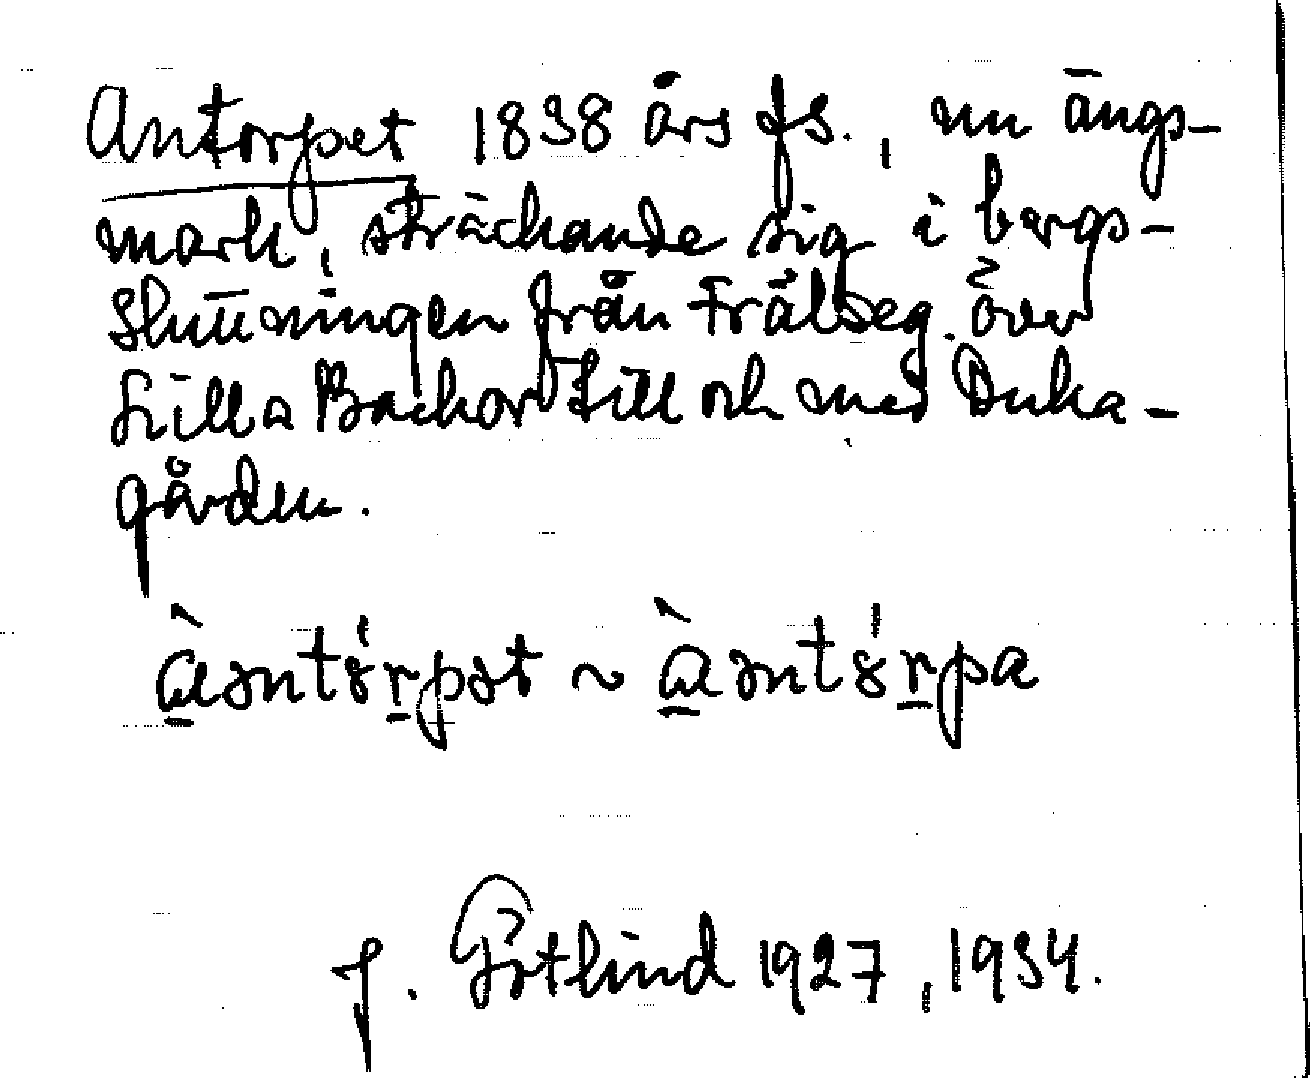 Antorpet 1838 års fs., nu ängs-
mark, sträckande sig i bergs-
sluttningen från Frälseg. över
Lilla Backor till och med Duka-
gården.
a̲əntȯr̲pət ~ a̲əntȯr̲pa
J. Götlind 1927, 1934.